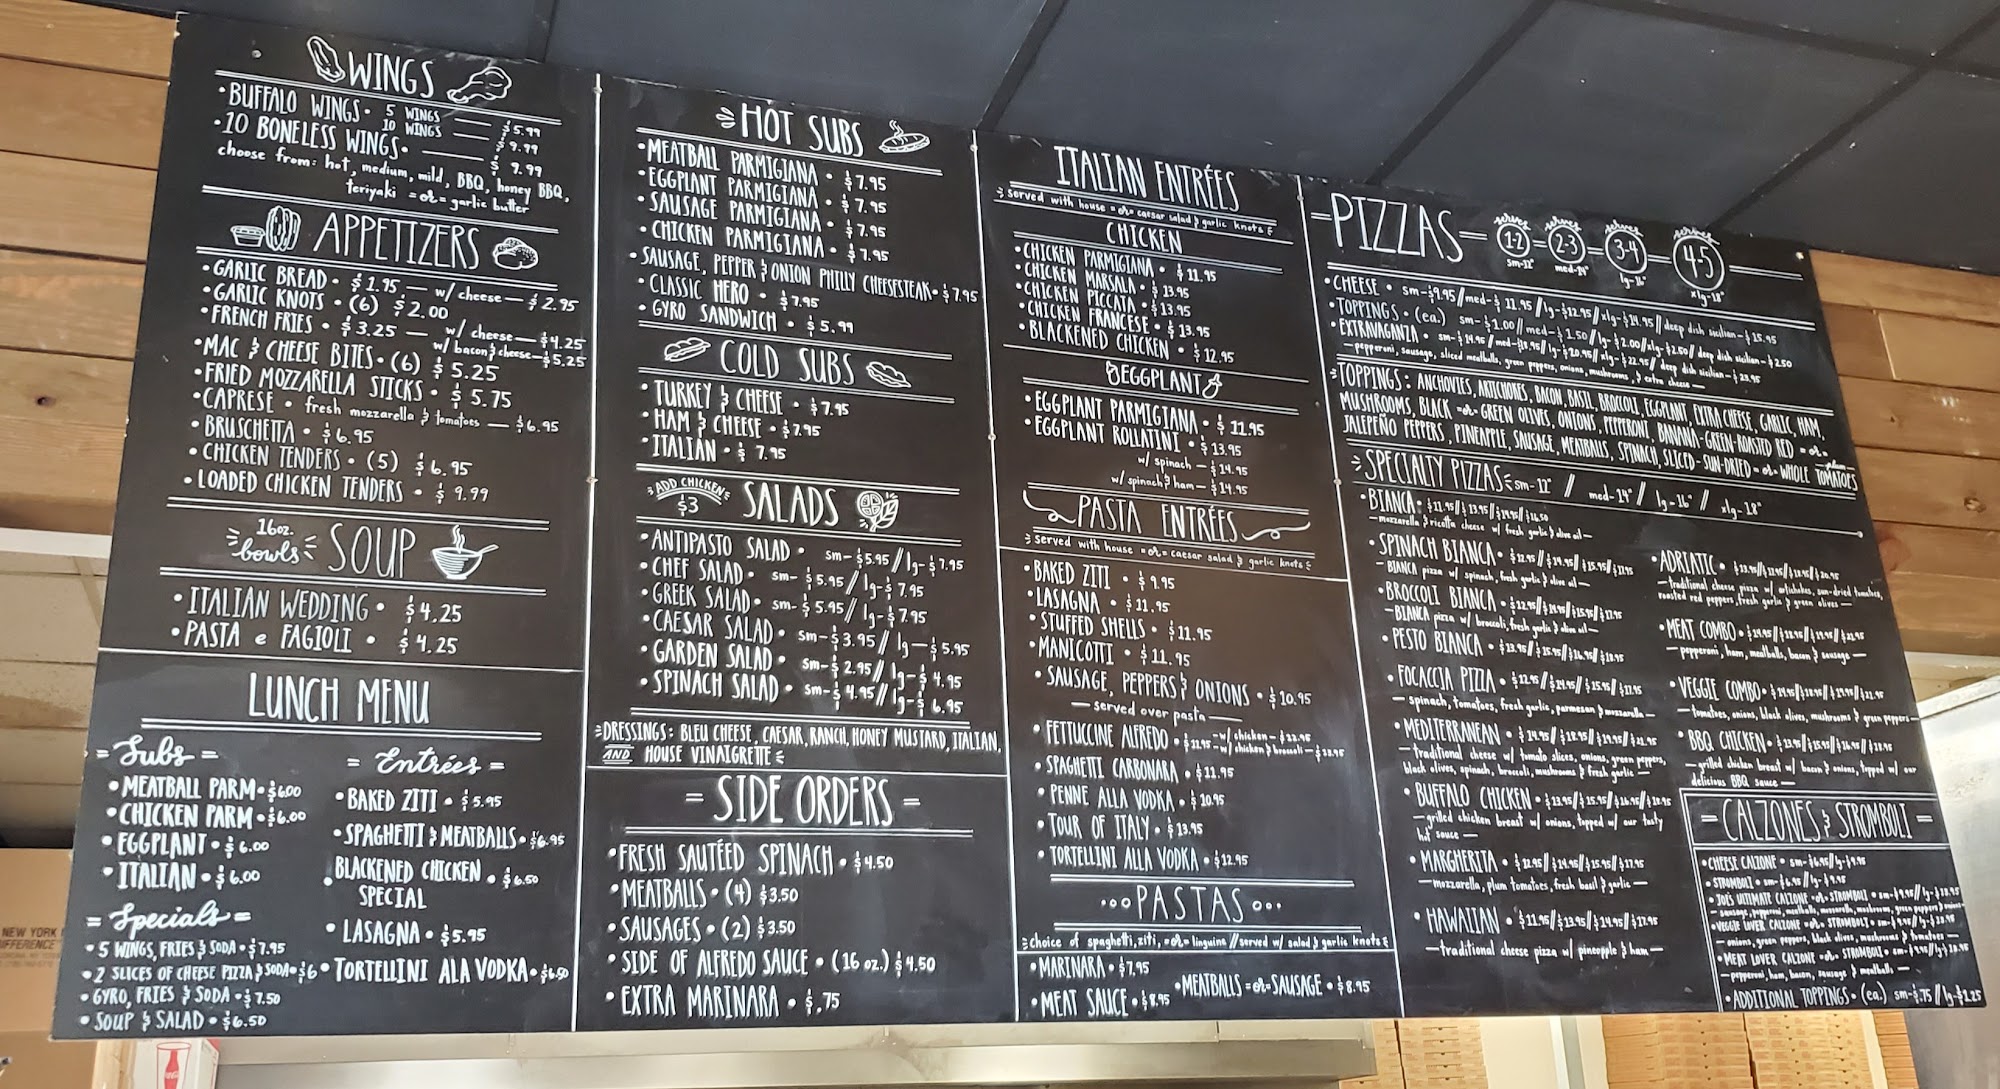 WINGS
• BUFFALO WINGS • 5 WINGS — $5.99
10 WINGS — $9.99
• 10 BONELESS WINGS • — $9.99
choose from: hot, medium, mild, BBQ, honey BBQ,
teriyaki =or= garlic butter
APPETIZERS
• GARLIC BREAD • $1.95 — w/ cheese — $2.95
• GARLIC KNOTS • (6) $2.00
• FRENCH FRIES • $3.25 — w/ cheese — $4.25
w/ bacon & cheese — $5.25
• MAC & CHEESE BITES • (6) $5.25
• FRIED MOZZARELLA STICKS • $5.75
• CAPRESE • fresh mozzarella & tomatoes — $6.95
• BRUSCHETTA • $6.95
• CHICKEN TENDERS • (5) $6.95
• LOADED CHICKEN TENDERS • $9.99
16oz. bowls SOUP
• ITALIAN WEDDING • $4.25
• PASTA e FAGIOLI • $4.25
LUNCH MENU
= Subs =
• MEATBALL PARM • $6.00
• CHICKEN PARM • $6.00
• EGGPLANT • $6.00
• ITALIAN • $6.00
= Specials =
• 5 WINGS, FRIES & SODA • $7.95
• 2 SLICES OF CHEESE PIZZA & SODA • $6
• GYRO, FRIES & SODA • $7.50
• SOUP & SALAD • $6.50
= Entrées =
• BAKED ZITI • $5.95
• SPAGHETTI & MEATBALLS • $6.95
• BLACKENED CHICKEN SPECIAL • $6.50
• LASAGNA • $5.95
• TORTELLINI ALA VODKA • $6.50
HOT SUBS
• MEATBALL PARMIGIANA • $7.95
• EGGPLANT PARMIGIANA • $7.95
• SAUSAGE PARMIGIANA • $7.95
• CHICKEN PARMIGIANA • $7.95
• SAUSAGE, PEPPER & ONION PHILLY CHEESESTEAK • $7.95
• CLASSIC HERO • $7.95
• GYRO SANDWICH • $5.99
COLD SUBS
• TURKEY & CHEESE • $7.95
• HAM & CHEESE • $7.95
• ITALIAN • $7.95
ADD CHICKEN $3 SALADS
• ANTIPASTO SALAD • sm-$5.95 // lg-$7.95
• CHEF SALAD • sm-$5.95 // lg-$7.95
• GREEK SALAD • sm-$5.95 // lg-$7.95
• CAESAR SALAD • sm-$3.95 // lg-$5.95
• GARDEN SALAD • sm-$2.95 // lg-$4.95
• SPINACH SALAD • sm-$4.95 // lg-$6.95
DRESSINGS: BLEU CHEESE, CAESAR, RANCH, HONEY MUSTARD, ITALIAN,
AND HOUSE VINAIGRETTE
= SIDE ORDERS =
• FRESH SAUTÉED SPINACH • $4.50
• MEATBALLS • (4) $3.50
• SAUSAGES • (2) $3.50
• SIDE OF ALFREDO SAUCE • (16 oz.) $4.50
• EXTRA MARINARA • $.75
ITALIAN ENTRÉES
served with house =or= caesar salad & garlic knots
CHICKEN
• CHICKEN PARMIGIANA • $11.95
• CHICKEN MARSALA • $13.95
• CHICKEN PICCATA • $13.95
• CHICKEN FRANCESE • $13.95
• BLACKENED CHICKEN • $12.95
EGGPLANT
• EGGPLANT PARMIGIANA • $11.95
• EGGPLANT ROLLATINI • $13.95
w/ spinach — $14.95
w/ spinach & ham — $14.95
PASTA ENTRÉES
served with house =or= caesar salad & garlic knots
• BAKED ZITI • $9.95
• LASAGNA • $11.95
• STUFFED SHELLS • $11.95
• MANICOTTI • $11.95
• SAUSAGE, PEPPERS & ONIONS • $10.95
— served over pasta —
• FETTUCCINE ALFREDO • $11.95 - w/ chicken — $12.95
- w/ chicken & broccoli —
• SPAGHETTI CARBONARA • $11.95
• PENNE ALLA VODKA • $10.95
• TOUR OF ITALY • $13.95
• TORTELLINI ALLA VODKA • $12.95
PASTAS
choice of spaghetti, ziti, =or= linguine // served w/ salad & garlic knots
• MARINARA • $7.95
• MEAT SAUCE • $8.95
• MEATBALLS =or= SAUSAGE • $8.95
PIZZAS
serves 1-2 sm-12"
serves 2-3 med-14"
serves 3-4 lg-16"
serves 4-5 xlg-18"
• CHEESE • sm-$9.95 // med-$11.95 // lg-$12.95 // xlg-$14.95 // deep dish sicilian-$15.95
• TOPPINGS • (ea.) sm-$1.00 // med-$1.50 // lg-$2.00 // xlg-$2.50 // deep dish sicilian-$2.50
• EXTRAVAGANZA • sm-$14.95 // med-$18.95 // lg-$20.95 // xlg-$22.95 // deep dish sicilian-$23.95
— pepperoni, sausage, sliced meatballs, green peppers, onions, mushrooms, & extra cheese —
TOPPINGS: ANCHOVIES, ARTICHOKES, BACON, BASIL, BROCCOLI, EGGPLANT, EXTRA CHEESE, GARLIC, HAM,
MUSHROOMS, BLACK =or= GREEN OLIVES, ONIONS, PEPPERONI, BANANA-GREEN-ROASTED RED =or=
JALEPEÑO PEPPERS, PINEAPPLE, SAUSAGE, MEATBALLS, SPINACH, SLICED-SUN-DRIED =or= WHOLE plum TOMATOES
SPECIALTY PIZZAS sm-12" // med-14" // lg-16" // xlg-18"
• BIANCA • $11.95 // $13.95 // $14.95 // $16.50
— mozzarella & ricotta cheese w/ fresh garlic & olive oil —
• SPINACH BIANCA • $12.95 // $14.95 // $15.95 // $17.95
— BIANCA pizza w/ spinach, fresh garlic & olive oil —
• BROCCOLI BIANCA • $12.95 // $14.95 // $15.95 // $17.95
— BIANCA pizza w/ broccoli, fresh garlic & olive oil —
• PESTO BIANCA • $13.95 // $15.95 // $16.95 // $18.95
• FOCACCIA PIZZA • $12.95 // $14.95 // $15.95 // $17.95
— spinach, tomatoes, fresh garlic, parmesan & mozzarella —
• MEDITERRANEAN • $14.95 // $18.95 // $19.95 // $21.95
— traditional cheese w/ tomato slices, onions, green peppers,
black olives, spinach, broccoli, mushrooms & fresh garlic —
• BUFFALO CHICKEN • $13.95 // $15.95 // $16.95 // $18.95
— grilled chicken breast w/ onions, topped w/ our tasty
hot sauce —
• MARGHERITA • $12.95 // $14.95 // $15.95 // $17.95
— mozzarella, plum tomatoes, fresh basil & garlic —
• HAWAIIAN • $11.95 // $13.95 // $14.95 // $17.95
— traditional cheese pizza w/ pineapple & ham —
• ADRIATIC •
— traditional cheese pizza w/ artichokes, sun-dried tomatoes,
roasted red peppers, fresh garlic & green olives —
• MEAT COMBO • $14.95 // $18.95 // $19.95 // $21.95
— pepperoni, ham, meatballs, bacon & sausage —
• VEGGIE COMBO • $14.95 // $18.95 // $19.95 // $21.95
— tomatoes, onions, black olives, mushrooms & green peppers —
• BBQ CHICKEN • $13.95 // $15.95 // $16.95 // $18.95
— grilled chicken breast w/ bacon & onions, topped w/ our
delicious BBQ sauce —
CALZONES & STROMBOLI
• CHEESE CALZONE • sm-$6.95 // lg-$9.95
• STROMBOLI • sm-$6.95 // lg-$9.95
• JOES ULTIMATE CALZONE =or= STROMBOLI • sm-$9.95 // lg-
— sausage, pepperoni, meatballs, mozzarella, mushroom, green peppers & onions
• VEGGIE LOVER CALZONE =or= STROMBOLI •
— onions, green peppers, black olives, mushrooms & tomatoes —
• MEAT LOVER CALZONE =or= STROMBOLI •
— pepperoni, ham, bacon, sausage & meatballs —
• ADDITIONAL TOPPINGS • (ea.) sm-$.75 // lg-$1.25
NEW YORK